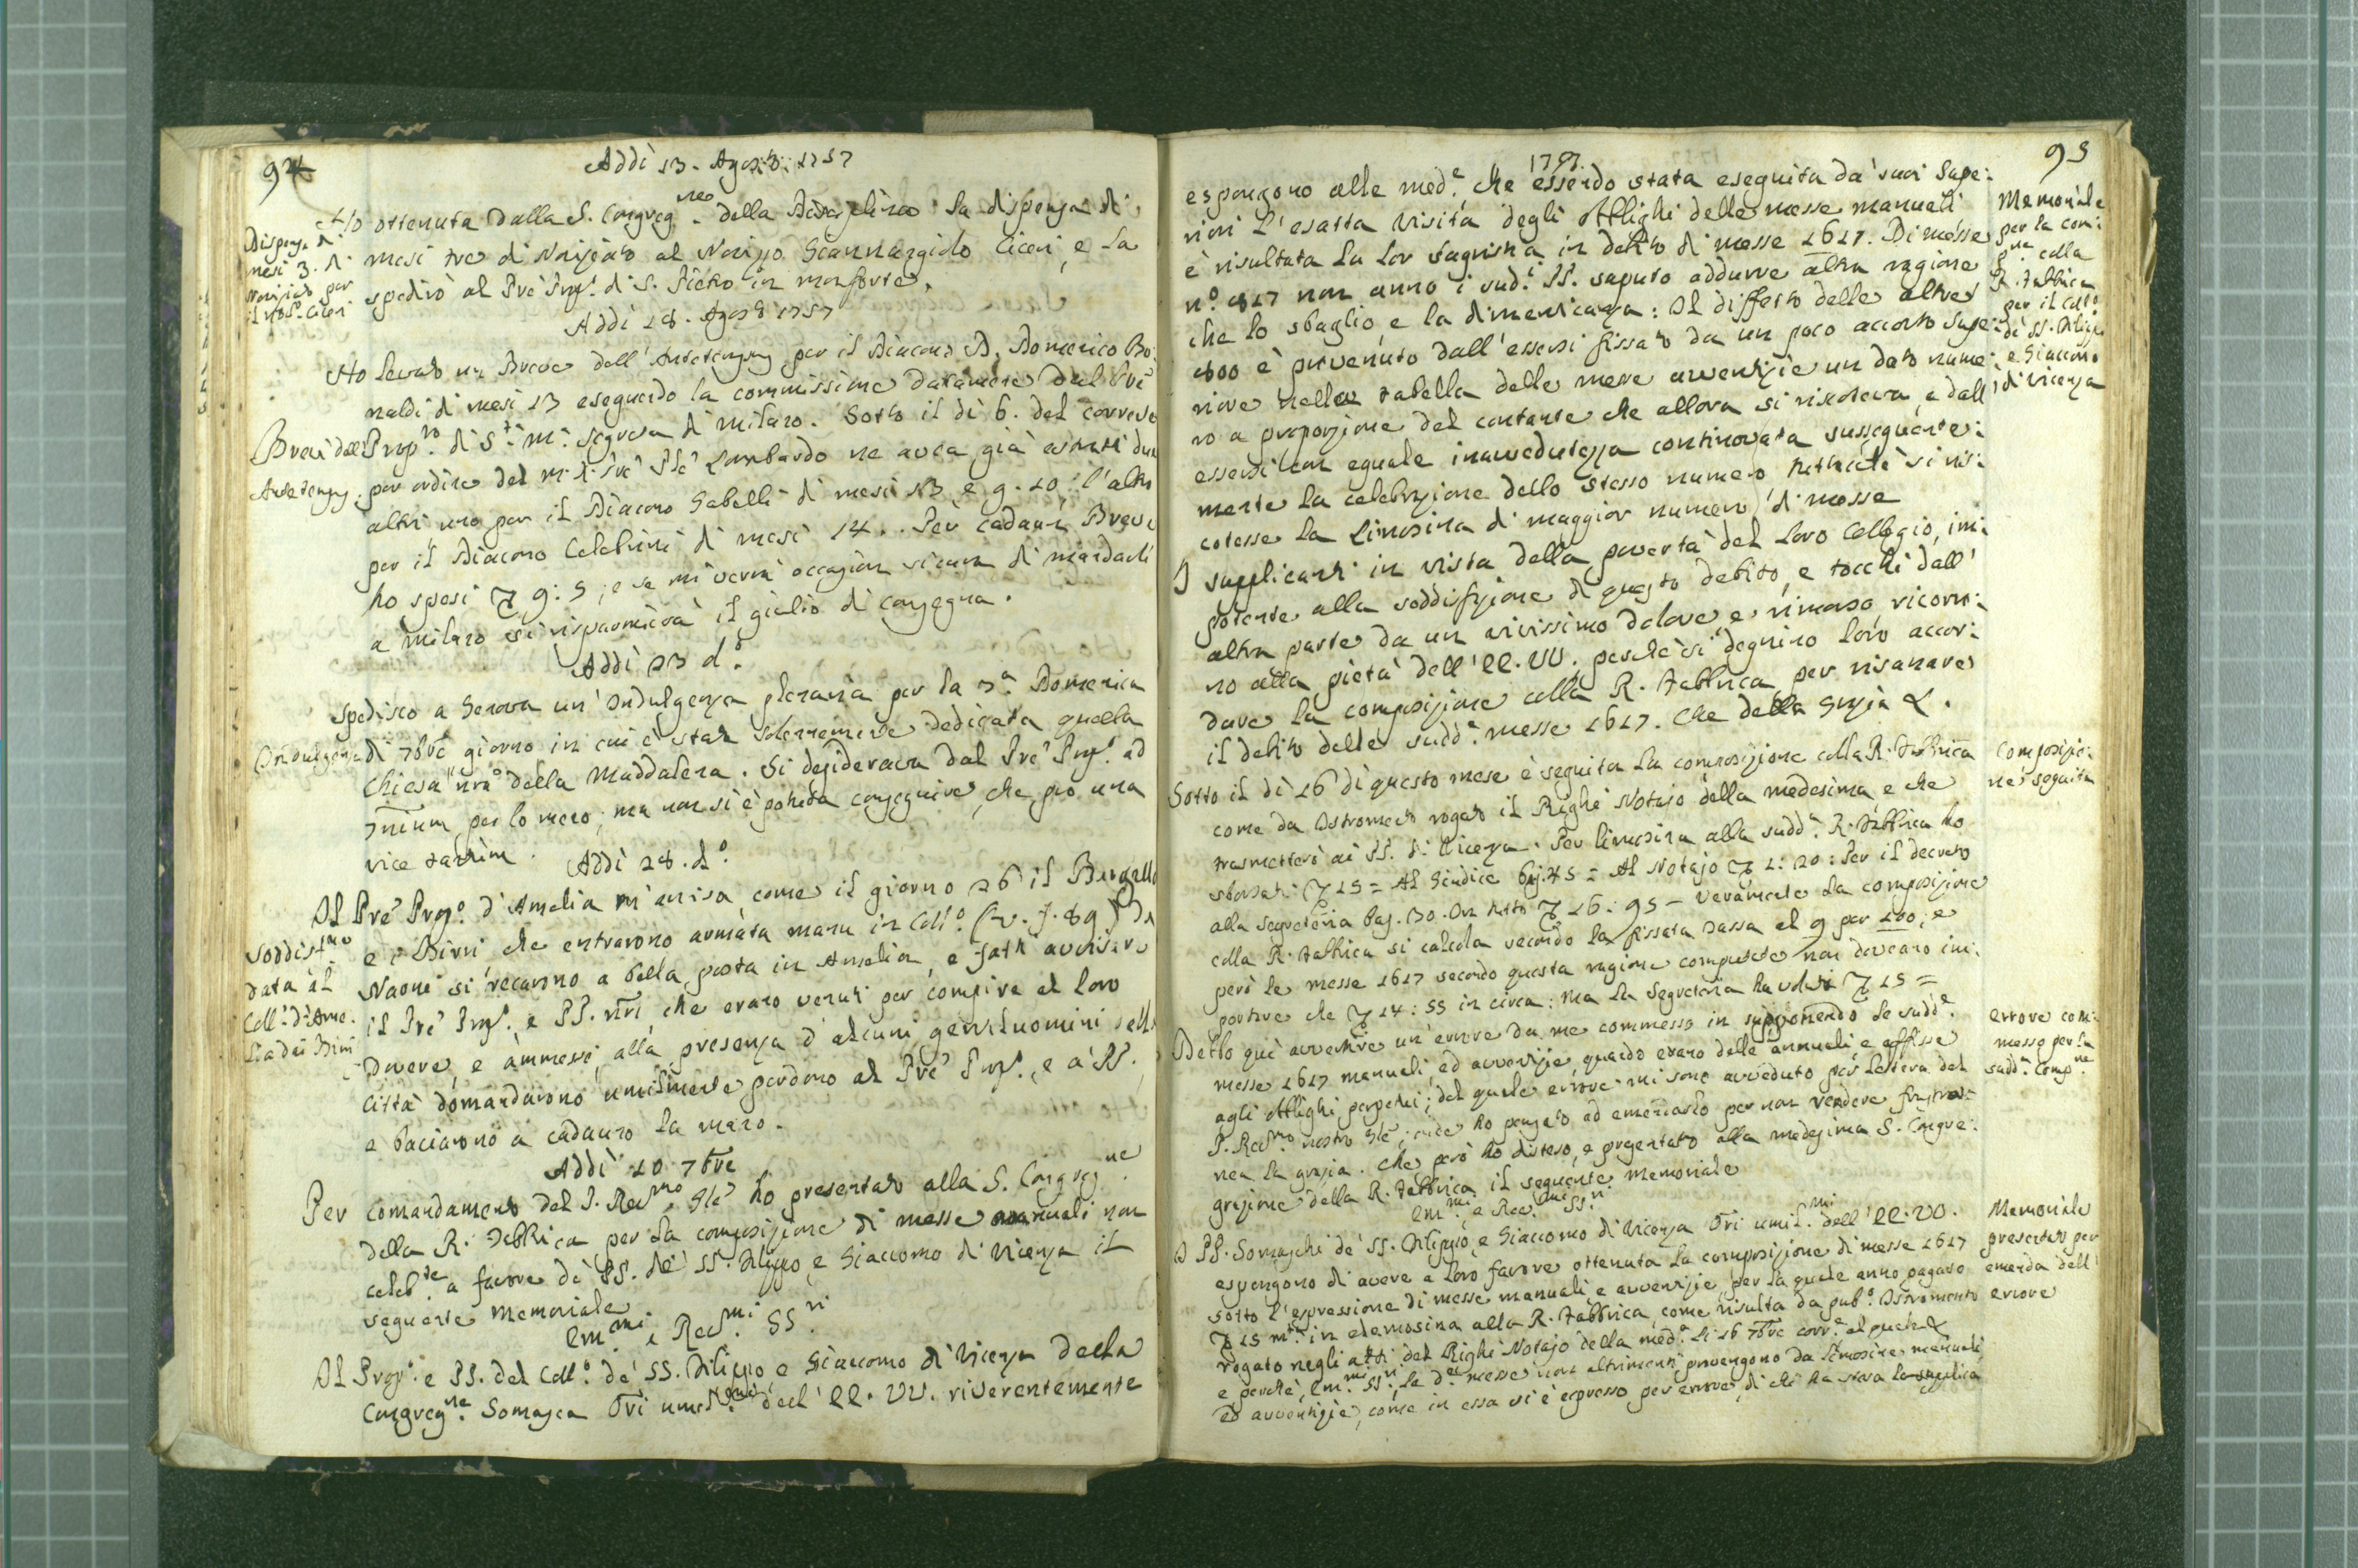 94
Addì 13. Agosto 1757
Ho ottenuta dalla S. Congreg.ne della Disciplina la dispensa di
mesi tre di Noviziato al Novizzo Giannangiolo Ciceri, e la
spedirò al Prē Prop.o di S. Pietro in monforte.
Dispensa di
mesi 3. di
Noviziato per
il Ciceri
Addì 18. Agosto 1757
Ho levato un Breve dell'Antetempus per il Diacono D. Domenico Bo:
naldi di mesi 13 eseguendo la commissione datamene dal Prē
Prop.to di S.ta M.a Segreta di Milano. Sotto il dì 6. del corrente
per ordine del M. R. Prē Lombardo ne avea già estratti due
altri uno per il Diacono Gabelli di mesi 13, e g. 20; l'altro
per il Diacono Celebrini di mesi 14.. Per cadaun Breve
ho spesi 9:5; e se mi verrà occasion sicura di mandarli
a Milano si risparmierà il giulio di consegna.
Brevi dell'
Antetempus.
Addì 23 d.o
Spedisco a Genova un' Indulgenza plenaria per la 3.a Domenica
di 7bre giorno in cui è stata solennemente dedicata quella
Chiesa nrā della Maddalena. Si desiderava dal Prē Prop.o ad
per lo meno; ma non si è potuta conseguire, che pro una
vice tantum.
Indulgenza
Addì 28. d.o
Il Prē Prop.o d'Amelia m'avisa come il giorno 26 il Bargello
e i Birri che entrarono armata manu in Coll.o (v. f. 89) da
Narni si recarono a bella posta in Amelia, e fatti avvisare
il Prē Prop.o e PP. nrī che erano venuti per compire al loro
dovere, e ammessi, alla presenza d'alcuni gentiluomini della
Città domandarono umilmente perdono al Prē Prop.o, e a' PP.
e baciarono a cadauno la mano.
Soddisf.ne
data al
Coll.o d'Ame:
lia dai Birri
Addì 10 7bre
Per comandamento del P. Rev.mo Glē ho presentato alla S. Congreg.ne
della R. Fabbrica per la composizione di messe manuali non
celeb.te a favore de' PP. de' SS. Filippo, e Giaccomo di Vicenza il
seguente memoriale
Em.mi e Rev.mi SS.ri
Il Prop.o e PP. del Coll.o de' SS. Filippo, e Giaccomo di Vicenza della
Congreg.ne Somasca Orī dell' EE. VV. riverentemente
95
1757.
espongono alle med.e che essendo stata eseguita da' suoi Supe:
riori l'esatta visita degli obblighi delle messe manuali
è risultata la lor sagristia in debito di messe 1617. Di messe
n.o 817 non anno i sud.i PP. saputo addurre altra ragione
che lo sbaglio, e la dimenticanza: Il diffetto delle altre
800 è provenuto dall'essersi fissato da un poco accorto Supe:
riore nella tabella delle mere avventizie un dato nume:
ro a proporzione del contante che allora si riscoteva, e dall'
essersi con eguale inavvedutezza continovata susseguente:
mente la celebrazione dello stesso numero si ris:
cotesse la limosina di maggior numero di messe
I supplicanti in vista della povertà del loro Collegio, im:
potente alla soddisfazione di questo debito, e tocchi dall'
altra parte da un vivissimo dolore e rimorso, ricorro:
no alla pietà dell' EE. VV. perchè si degnino loro accor:
dare la composizione colla R. Fabbrica per risanare
il debito delle sudd.e messe 1617. Che della Grazia &.
Memoriale
per la comp:
ne colla
R. Fabbrica
per il Coll.o
di SS. Filippo
e Giaccomo
di Vicenza
Sotto il dì 16 di questo mese è seguita la composizione colla R. Fabbrica
come da Istromento rogato il Righi Notajo della medesima, e che
trasmetterò ai PP. di Vicenza. Per limosina alla sudd.a R. Fabbrica ho
sborsati 15 = Al Giudice baj. 45 = Al Notajo 1:20: Per il decreto
alla Segreteria baj. 30. In tutto 16:95 - Veramente la composizione
colla R. Fabbrica si calcola secondo la fissata tassa al 9 per 100; e
però le messe 1617 secondo questa ragione computate non doveano im:
portare che 14:55 in circa: ma la Segreteria ha voluti 15 =
Composizio:
ne seguita
Debbo quì avvertire un'errore da me commesso in supponendo le sudd.e
messe 1617 manuali ed avventizie, quando erano delle annuali, e affisse
agli obblighi perpetui; del quale errore mi sono avveduto per lettera del
P. Rev.mo nostro Glē; onde ho pensato ad emendarlo per non rendere frustra:
nea la grazia. Che però ho disteso, e presentato alla medesima S. Congre:
gazione della R. Fabbrica il seguente memoriale
errore com:
messo per la
sudd.a Comp.ne
Em.mi e Rev.mi SS.ri
I PP. Somaschi de' SS. Filippo, e Giaccomo di Vicenza Orī umil.mi dell' EE. VV.
espongono di avere a loro favore ottenuta la composizione di messe 1617
sotto l'espressione di messe manuali e avventizie, per la quale anno pagato
15 m.ta in elemosina alla R. Fabbrica, come risulta da pub.o Istromento
rogato negli atti del Righi Notajo della med.a li 16 7bre corr.e al quale &
e perchè, Em.mi SS.ri, le d.e messe non altrimenti provengono da limosine manuali,
ed avventizie, come in essa si è espresso per errore, di chi ha stesa la supplica
Memoriale
presentato per
emenda dell'
errore